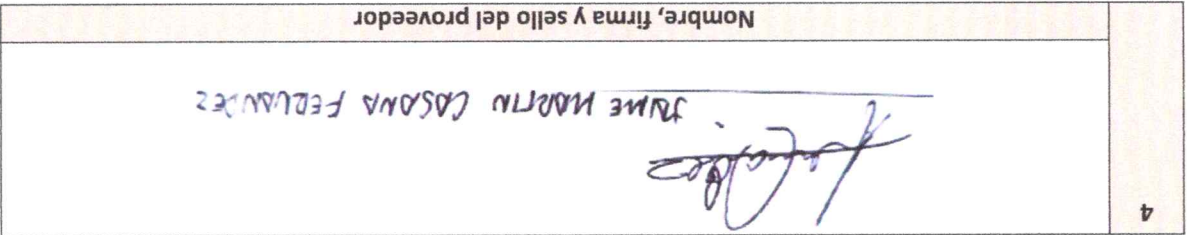 4
JAIME MARTIN CASANA FERNANDEZ
Nombre, firma y sello del proveedor